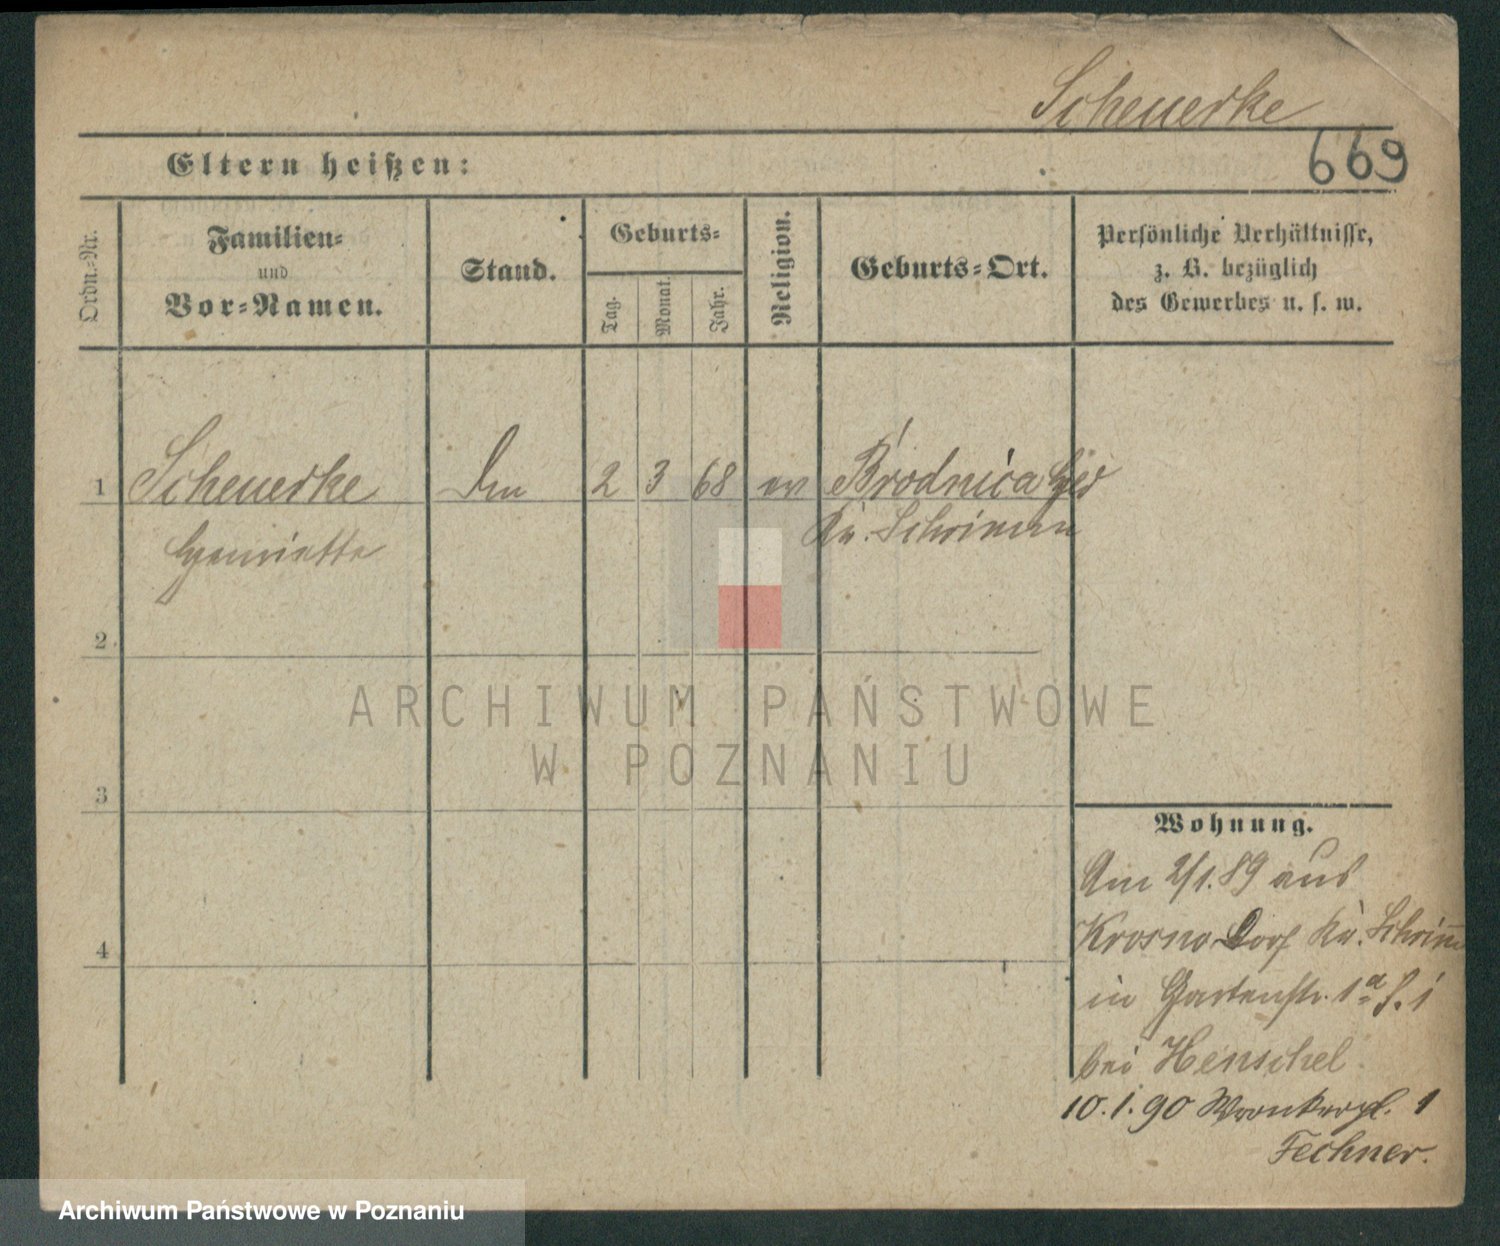 Scheuerke
669
Eltern heißen:
Ordn.-Nr.
Familien-
und
Vor-Namen.
Stand.
Geburts-
Tag.
Monat.
Jahr.
Religion.
Geburts-Ort.
Persönliche Verhältnisse,
z. B. bezüglich
des Gewerbes u. s. w.
1 Scheuerke 2 3 68 ev Brodnica
Henriette Kr. Schrimm
2
ARCHIWUM PAŃSTWOWE
W POZNANIU
3
Wohnung.
Am 2/1.89 aus
Krosno Dorf Kr. Schrimm
4
in Gartenstr. 1a
bei Henschel
10.1.90 Wronkerpl. 1
Fechner.
Archiwum Państwowe w Poznaniu